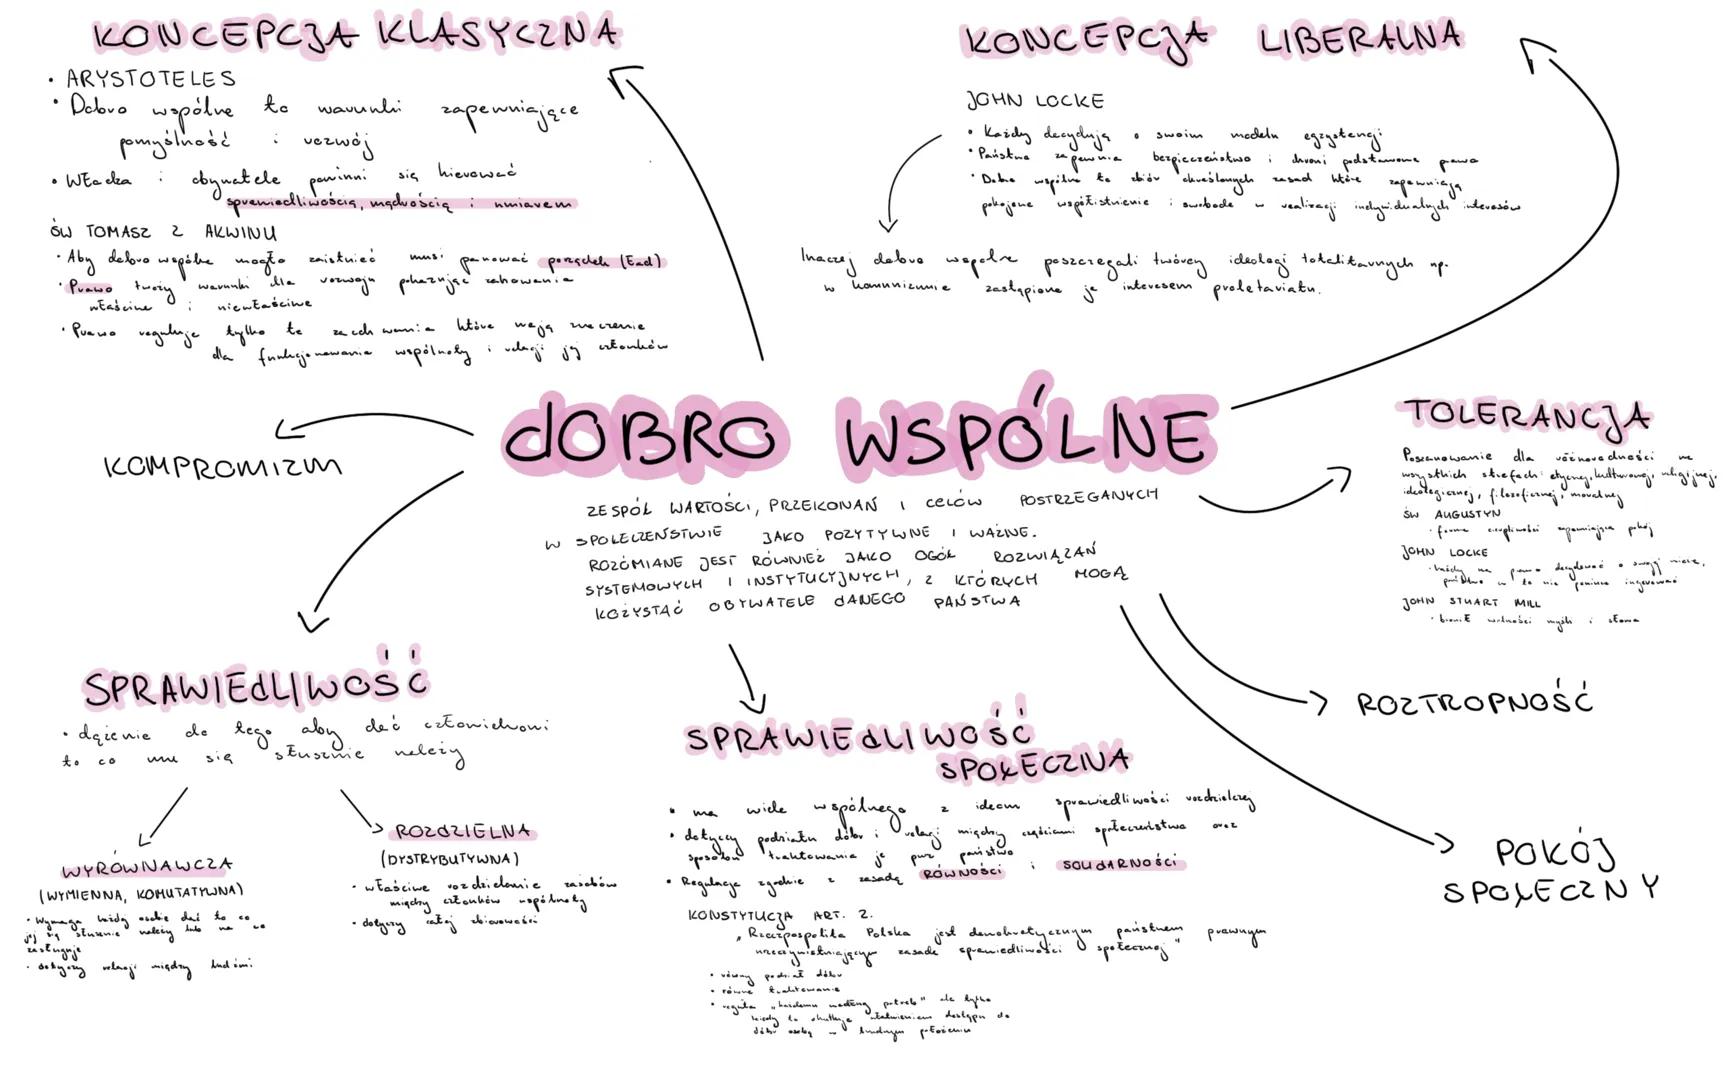 KONCEPCJA KLASYCZNA
• ARYSTOTELES
• Dobro wspólne to warunki zapewniające
pomyślność i rozwój
• Władza i obywatele powinni się kierować
sprawiedliwością, mądrością i umiarem
ŚW TOMASZ Z AKWINU
• Aby dobro wspólne mogło zaistnieć musi panować porządek (ład)
• Prawo tworzy warunki dla rozwoju pokazując zachowania
właściwe i niewłaściwe
• Prawo reguluje tylko te zachowania które mają znaczenie
dla funkcjonowania wspólnoty i relacji jej członków
KONCEPCJA LIBERALNA
JOHN LOCKE
• Każdy decydują o swoim modelu egzystencji
• Państwo zapewnia bezpieczeństwo i chroni podstawowe prawa
• Dobro wspólne to zbiór określonych zasad które zapewniają
pokojowe współistnienie i swobodę w realizacji indywidualnych interesów
Inaczej dobro wspólne poszczegali twórcy ideologi totalitarnych np.
w komunizmie zastąpiono je interesem proletariatu.
dOBRO WSPÓLNE
ZESPÓŁ WARTOŚCI, PRZEKONAŃ I CELÓW POSTRZEGANYCH
W SPOŁECZEŃSTWIE JAKO POZYTYWNE I WAŻNE.
ROZÓMIANE JEST RÓWNIEŻ JAKO OGÓŁ ROZWIĄZAŃ
SYSTEMOWYCH I INSTYTUCYJNYCH, Z KTÓRYCH MOGĄ
KOŻYSTAĆ OBYWATELE dANEGO PAŃSTWA
KOMPROMIZM
TOLERANCJA
Poszanowanie dla różnorodności we
wszystkich strefach: etycznej, kulturowej, religijnej,
ideologicznej, filozoficznej, moralnej
ŚW AUGUSTYN
• forma cierpliwości zapewniająca pokój
JOHN LOCKE
• każdy ma prawo decydować o swojej wierze,
państwo w to nie powinno ingerować
JOHN STUART MILL
• bronił wolności myśli i słowa
ROZTROPNOŚĆ
POKÓJ
SPOŁECZNY
SPRAWIEdLIWOŚĆ
• dążenie do tego aby dać człowiekowi
to co mu się słusznie należy
WYRÓWNAWCZA
(WYMIENNA, KOMUTATYWNA)
• Wymaga każdej osobie dać to co
jej się słusznie należy lub na co
zasługuje
• dotyczy relacji między ludźmi
ROZdZIELNA
(DYSTRYBUTYWNA)
• właściwe rozdzielanie zasobów
między członków wspólnoty
• dotyczy całej zbiorowości
SPRAWIEdLIWOŚĆ
SPOŁECZNA
• ma wiele wspólnego z ideom sprawiedliwości rozdzielczej
• dotyczy podziału dóbr i relacji między częściami społeczeństwa oraz
sposobu traktowania je prze państwo
• Regulacje zgodnie z zasadą RÓWNOŚCI i SOLIdARNOŚCI
KONSTYTUCJA ART. 2.
„Rzeczpospolita Polska jest demokratycznym państwem prawnym
urzeczywistniającym zasadę sprawiedliwości społecznej"
• równy podział dóbr
• równe traktowanie
• reguła „każdemu według potrzeb" ale tylko
kiedy to skutkuje ułatwieniem dostępu do
dóbr osobą w trudnym położeniu